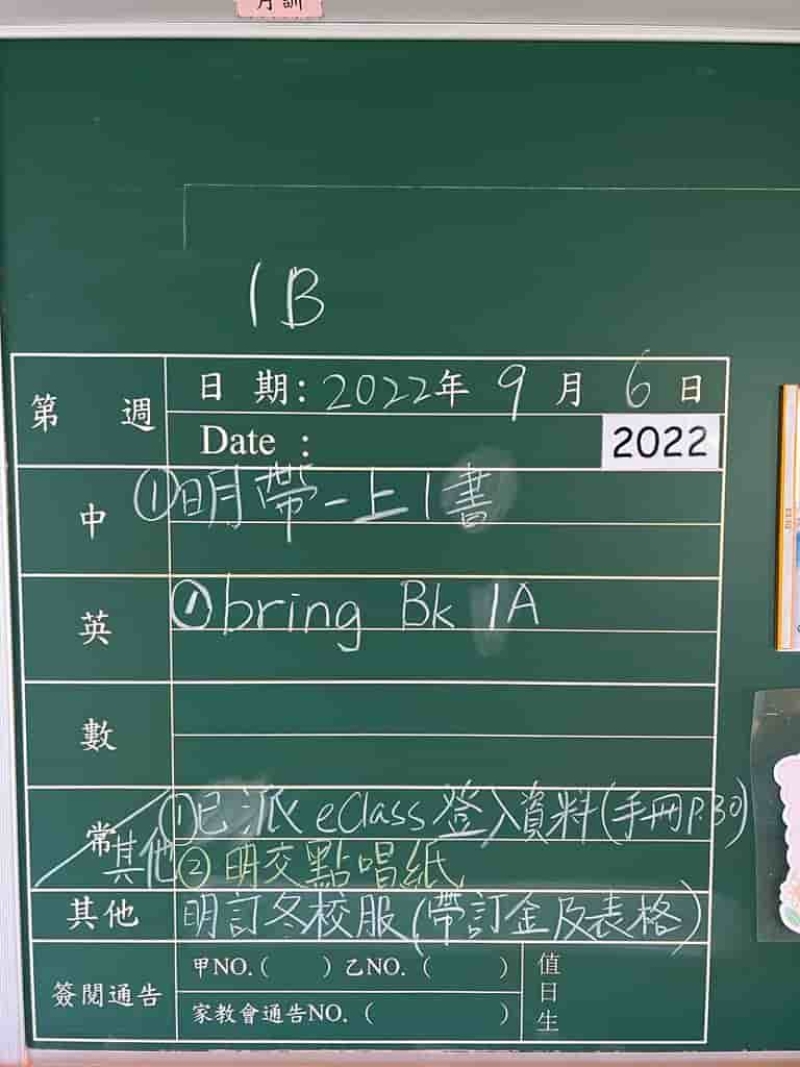 月訓
1B
第 週
日 期: 2022年 9 月 6 日
Date : 2022
中 ①明帶一上1書
英 ①bring Bk 1A
數
常 其他 ①已派 eClass 登入資料(手冊P.30)
②明交點唱紙
其他 明訂冬校服(帶訂金及表格)
簽閱通告 甲NO.( ) 乙NO. ( )
家教會通告NO. ( )
值日生